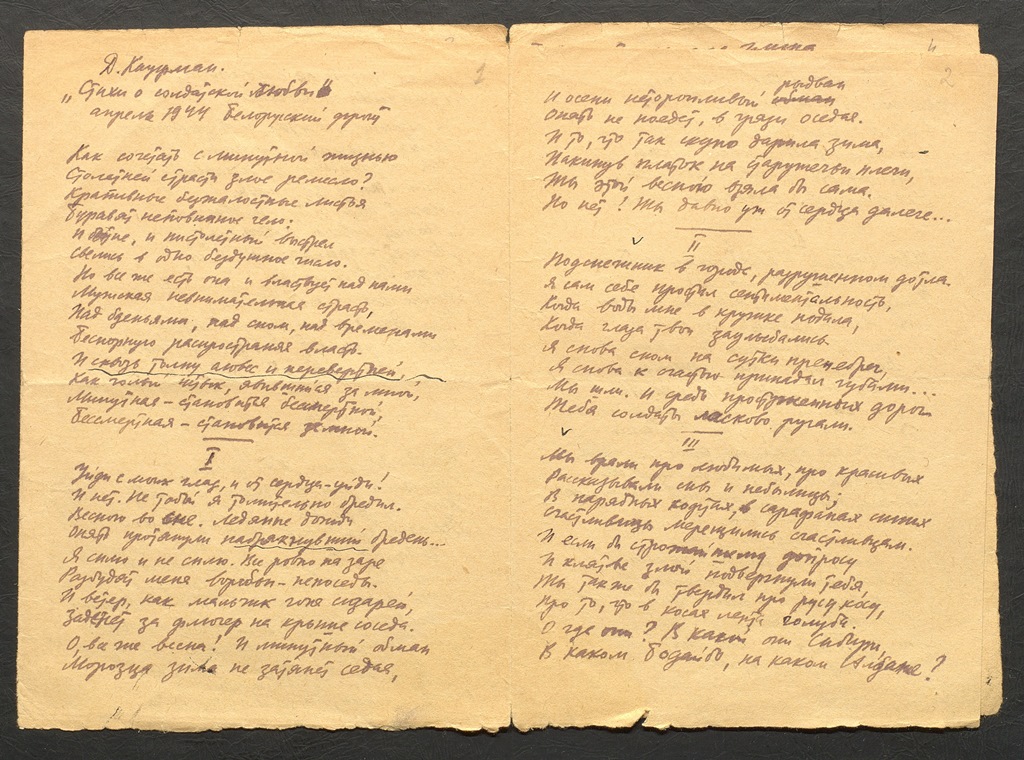 1
Д. Кауфман.
„Стихи о солдатской любви"
апрель 1944 Белорусский фронт
Как сочетать с минутной жизнью
Столетней страсти злое ремесло?
Крапивные безжалостные листья
Буравят неповинное чело.
И , и пистолетный выстрел
Свелись в одно бездушное число.
Но все же есть она и властвует над нами
Мужская невнимательная страсть,
Над буднями, над сном, над временами
Бесспорную распространяя власть.
И сквозь толпу аловс и перевертней,
Как голый штык, явившийся за мной,
Минутная – становится бессмертной,
Бессмертная – становится земной.
I
Уйди с моих глаз, и от сердца – уйди!
И нет. Не тобой я томительно бредил.
Весною во сне. Ледяные дожди
Опять протянули набрякнувший бредень...
Я сплю и не сплю. Все ровно на заре
Разбудят меня воробьи – непоседы.
И ветер, как мальчик гоня сизарей,
Заденет за флюгер на крыше соседа.
О, все же весна! И минутный обман
Морозца зима не затянет седая,
4
глина
2
рыдван
И осени неторопливой обман
Опять не поедет, в грязи оседая.
И то, что так скупо дарила зима,
Накинув платок на старушечьи плечи,
Ты этой весною взяла бы сама.
Но нет! Ты давно уж от сердца далече...
II
Подснежник в городе, разрушенном дотла.
Я сам себе простил сентиментальность,
Когда воды мне в кружке подала,
Когда глаза твои заулыбались
Я снова сном на сутки пренебрег,
Я снова к счастью припадал губами...
Мы шли. И средь простуженных дорог
Тебя солдаты ласково ругали.
III
Мы врали про любимых, про красивых
Рассказывали сны и небылицы;
В нарядных кофтах, в сарафанах синих
Счастливицы мерещились счастливцам.
И если бы строжайшему допросу
И клятве злой подвергнули тебя,
Ты так же бы твердил про русу косу,
Про то, что в косах лента голуба.
О где они? В какой они Сибири,
В каком Бодайбо, на каком Алдане?